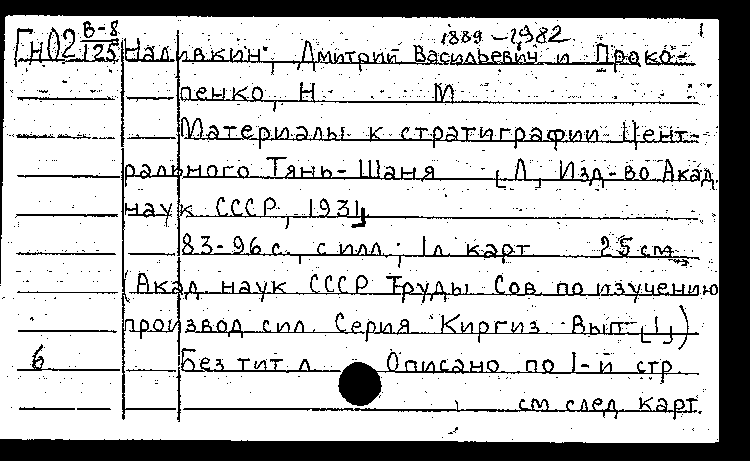 1889-1982 1
Гн02 В-8/125 Наливкин, Дмитрий Васильевич и Проко-
пенко, Н. М
Материалы к стратиграфии Цент-
рального Тянь-Шаня [Л, Изд-во Акад.
наук СССР, 1931]
83-96 с., с илл.; 1 л. карт 25 см.
(Акад. наук СССР Труды Сов по изучению
производ сил. Серия Киргиз. Вып [1])
6 Без тит л. Описано по 1-й стр
см след. карт.